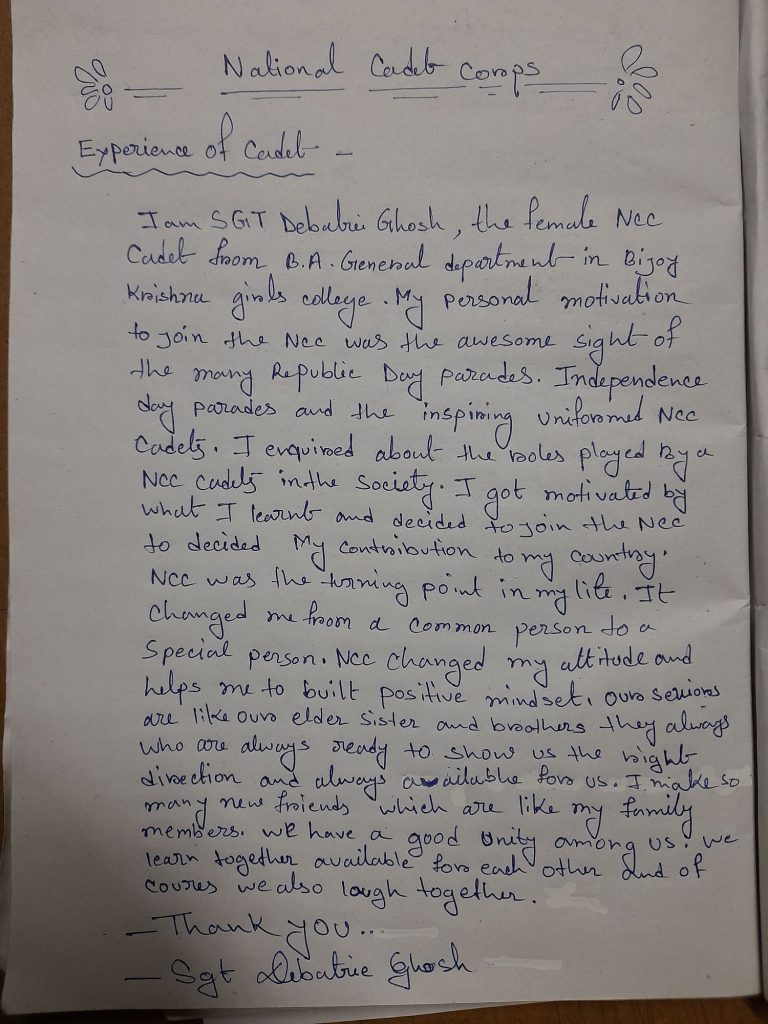 National Cadet Corps
Experience of Cadet -
I am SGT Debatrei Ghosh, the female NCC
Cadet from B.A. General department in Bijoy
Krishna girls college. My personal motivation
to join the NCC was the awesome sight of
the many Republic Day parades. Independence
day parades and the inspiring uniformed NCC
Cadets. I enquired about the roles played By a
NCC cadets in the society. I got motivated by
what I learnt and decided to join the NCC
to decided My contribution to my country.
NCC was the turning point in my life. It
changed me from a common person to a
special person. NCC changed my attitude and
helps me to built positive mindset. our seniors
are like our elder sister and broothers they always
who are always ready to show us the right
direction and always available for us. I make so
many new friends which are like my family
members. WE have a good Unity among us. we
learn together available for each other and of
coures we also laugh together.
- Thank you...
- Sgt Debatrie Ghosh